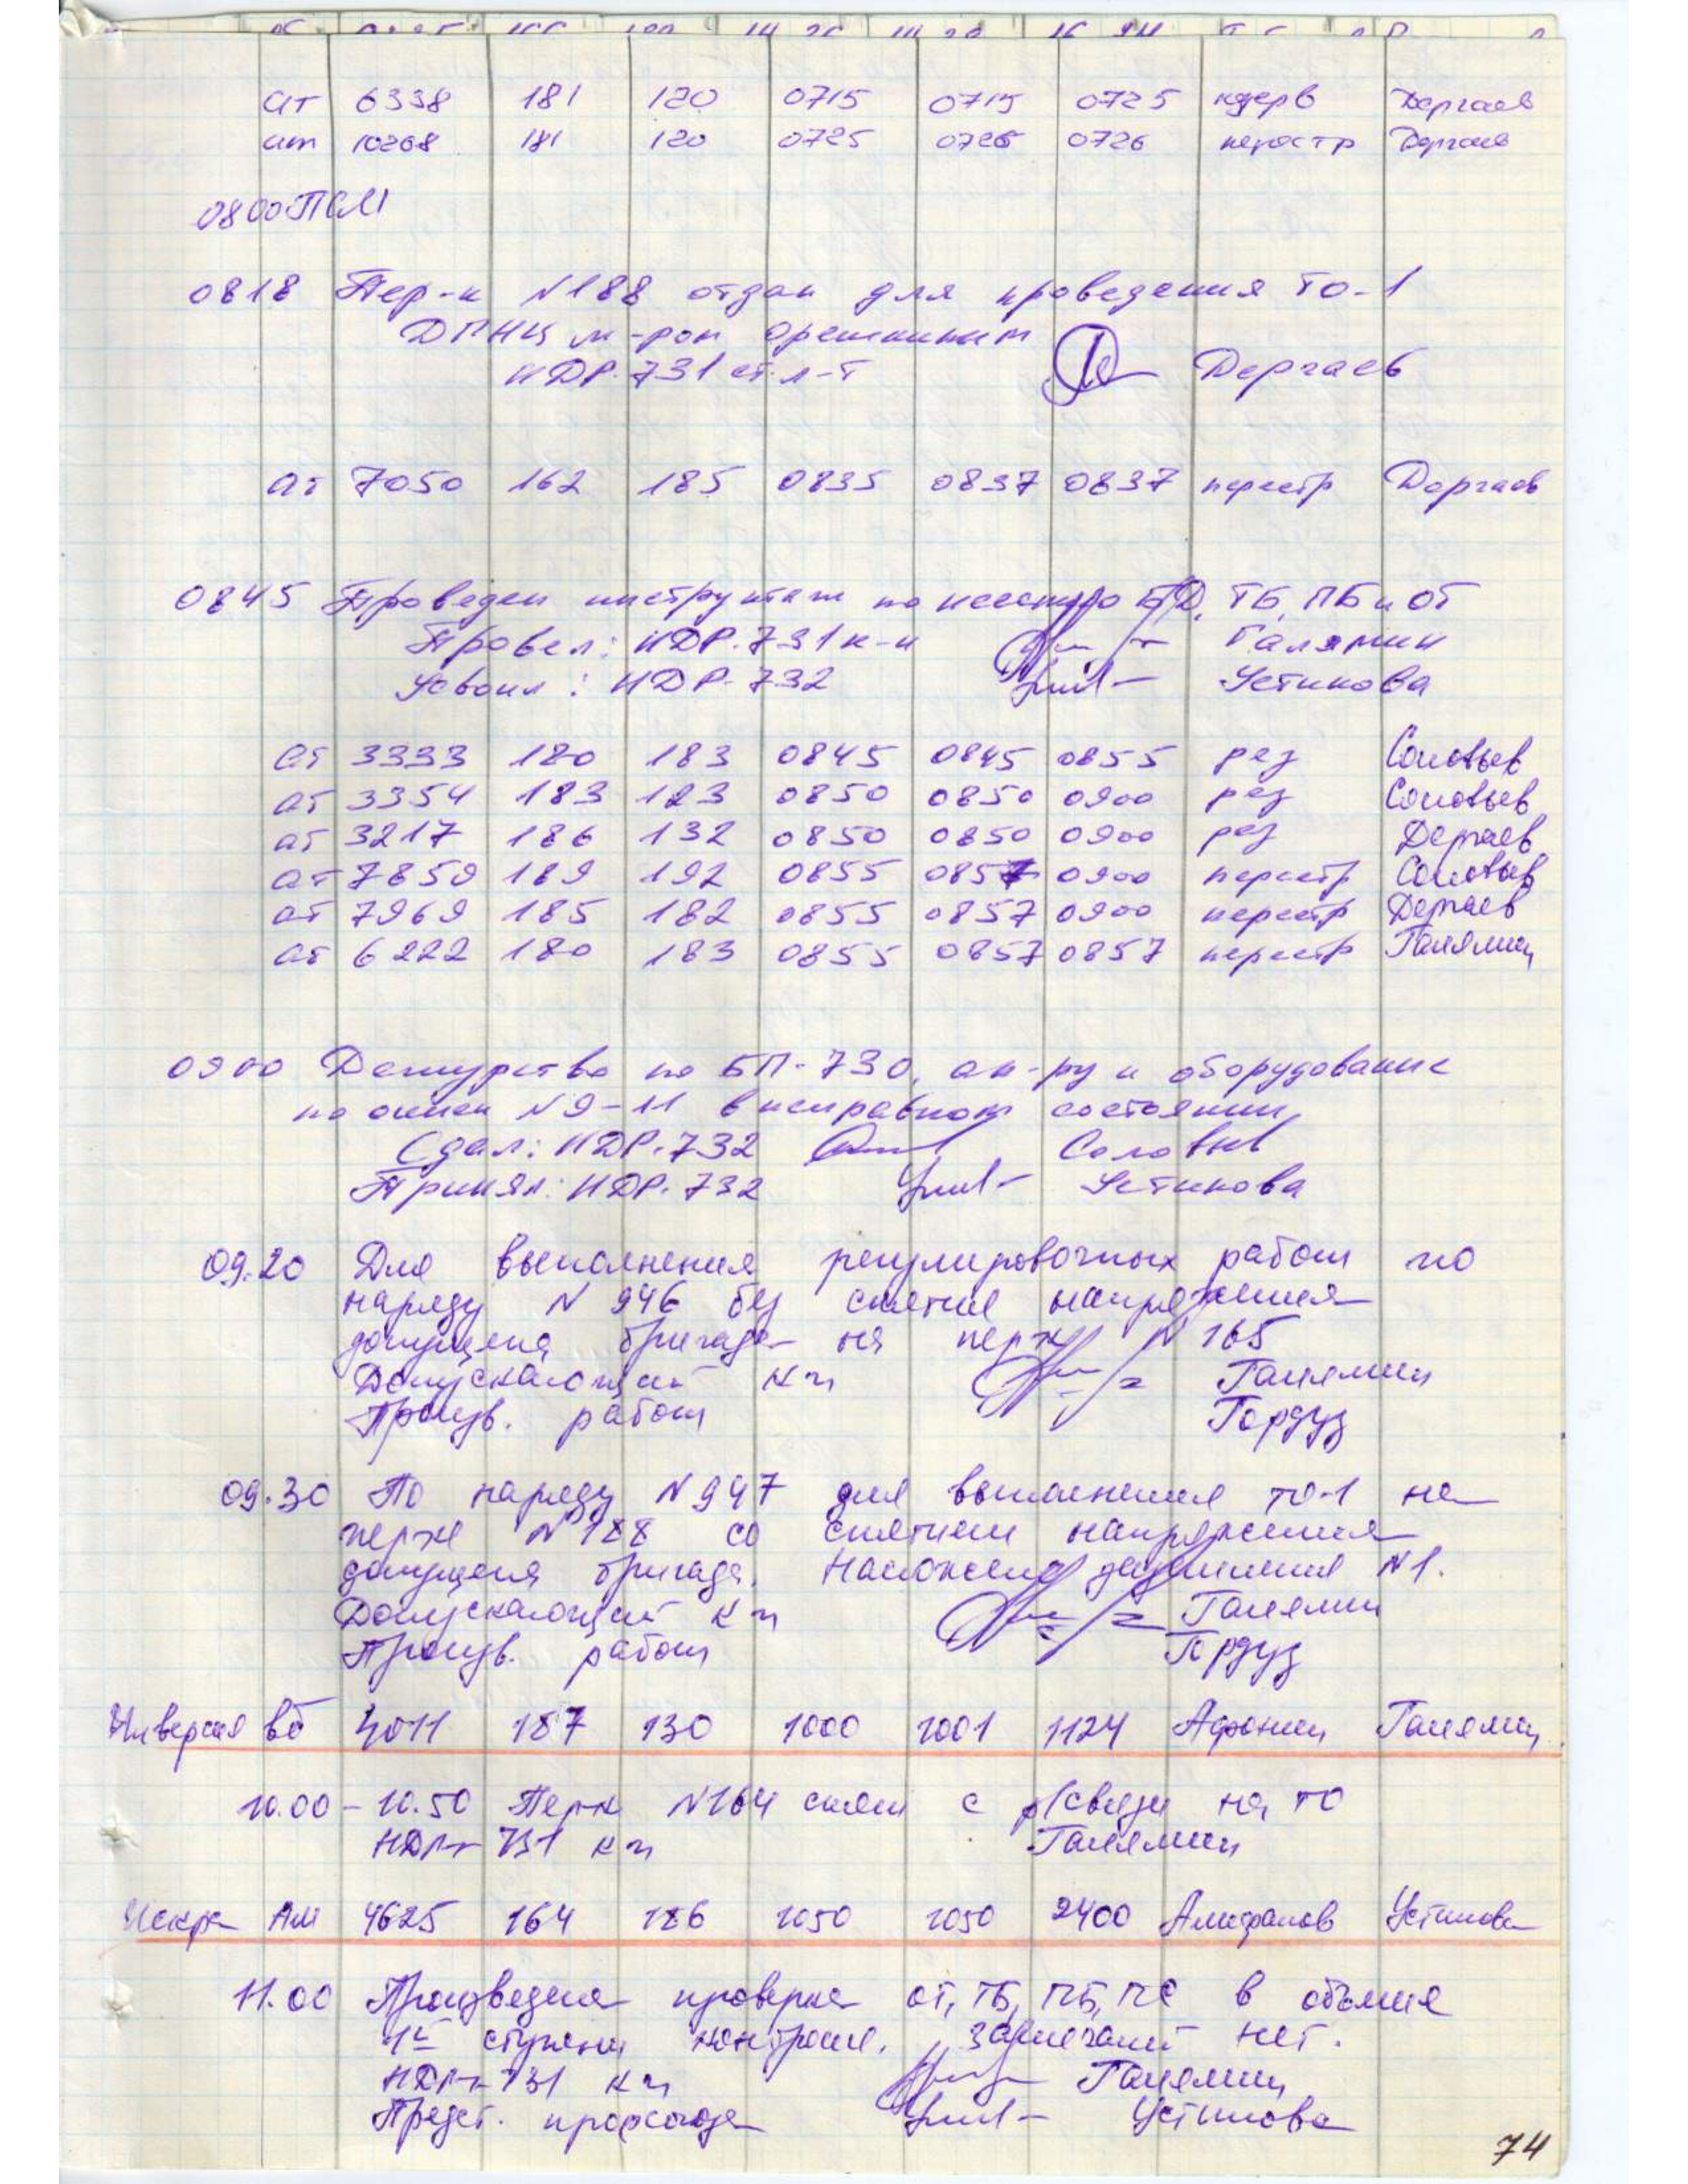 ат 6338 181 120 0715 0715 0725 Дергаев
ат 10268 181 120 0725 0726 0726 перестр Дергаев
0800 ПСМ
0818 Пер-к N188 отдан для проведения ТО-1
ДПНЦ м-ром Орешкиным
НДР-731 ст.л-т Дергаев
ат 7050 162 185 0835 0837 0837 перестр Дергаев
0845 Проведен инструктаж по несению БД, ТБ, ПБ и ОТ
Провел: НДР-731 к-н Галямин
Усвоил: НДР-732 Устинова
ат 3333 180 183 0845 0845 0855 рез Соловьев
ат 3354 183 123 0850 0850 0900 рез Соловьев
ат 3217 186 132 0850 0850 0900 рез Дергаев
ат 7859 189 192 0855 0857 0900 перестр Соловьев
ат 7969 185 182 0855 0857 0900 перестр Дергаев
ат 6222 180 183 0855 0857 0857 перестр Галямин
0900 Дежурство по БП-730, ап-ру и оборудование
по описи N9-11 в исправном состоянии
Сдал: НДР-732 Соловьев
Принял: НДР-732 Устинова
09.20 Для выполнения регулировочных работ по
наряду N 946 без снятие напряжения
допущена бригада на перк N 165
Допускающий к-н Галямин
Произв. работ Гордуз
09.30 По наряду N 947 для выполнения ТО-1 на
перке N 188 со снятием напряжения
допущена бригада. Наложено заземления N1.
Допускающий к-н Галямин
Произв. работ Гордуз
Инверсия вб 4011 187 130 1000 1001 1124 Афонин Галямин
10.00 - 10.50 Перк N164 снят с р/связи на ТО
НДР-731 к-н Галямин
Искра Ам 4625 164 186 1050 1050 2400 Устинова
11.00 Произведена проверка ОТ, ТБ, ПБ, ПС в объеме
1й ступени контроля. Замечаний нет.
НДР-731 к-н Галямин
Предст. профсоюза Устинова
74